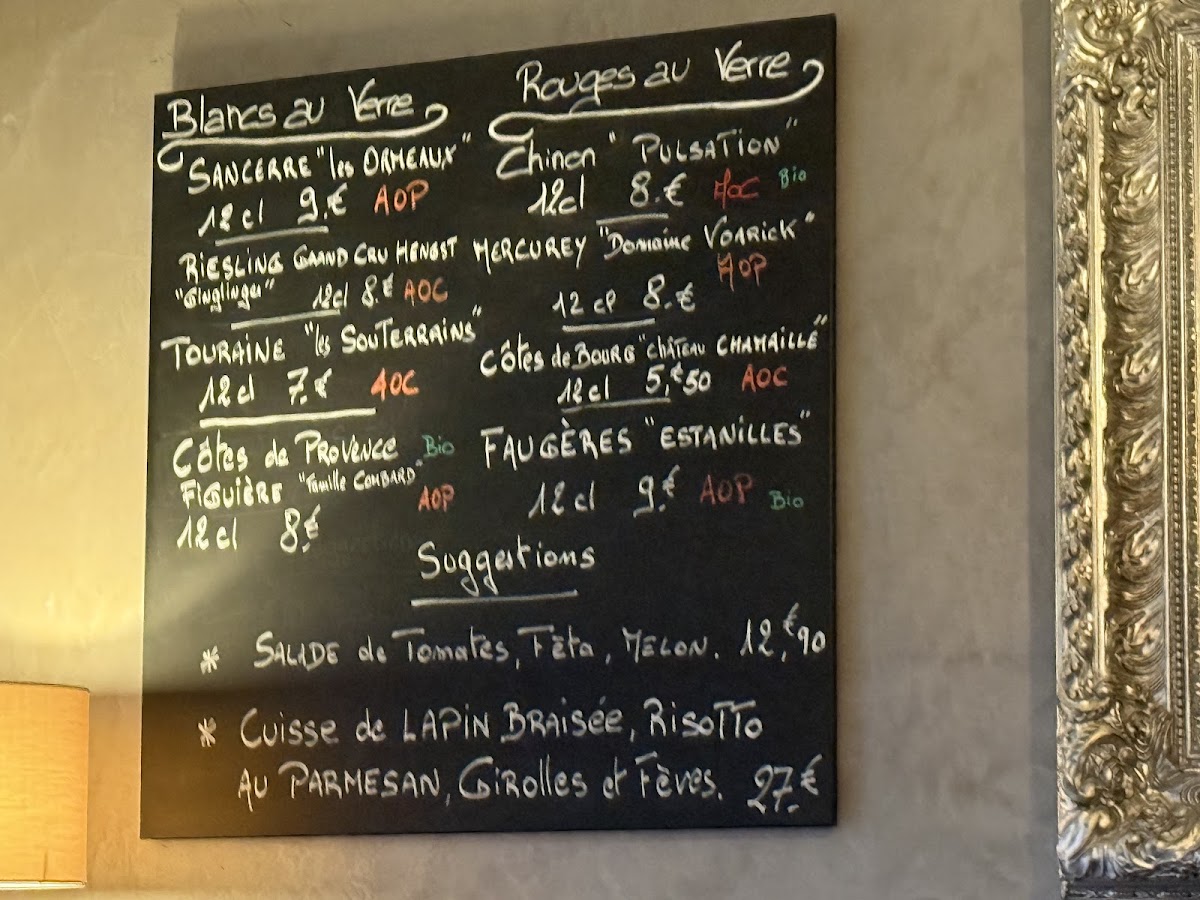 Blancs au Verre
SANCERRE "les ORMEAUX"
12cl 9.€ AOP
RIESLING GRAND CRU HENGST
"Ginglinger" 12cl 8.€ AOC
TOURAINE "les SOUTERRAINS"
12cl 7.€ AOC
Côtes de PROVENCE Bio
FIGUIÈRE "Famille COMBARD"
AOP
12cl 8.€
Rouges au Verre
Chinon "PULSATION"
12cl 8.€ AOC Bio
MERCUREY "Domaine VOARICK"
AOP
12cl 8.€
CÔTES de BOURG "CHÂTEAU CHAMAILLE"
12cl 5,€50 AOC
FAUGÈRES "ESTANILLES"
12cl 9.€ AOP Bio
Suggestions
* SALADE de Tomates, Fèta, MELON. 12,€90
* Cuisse de LAPIN BRAISÉE, RISOTTO
AU PARMESAN, GIROLLES et Fèves. 27.€